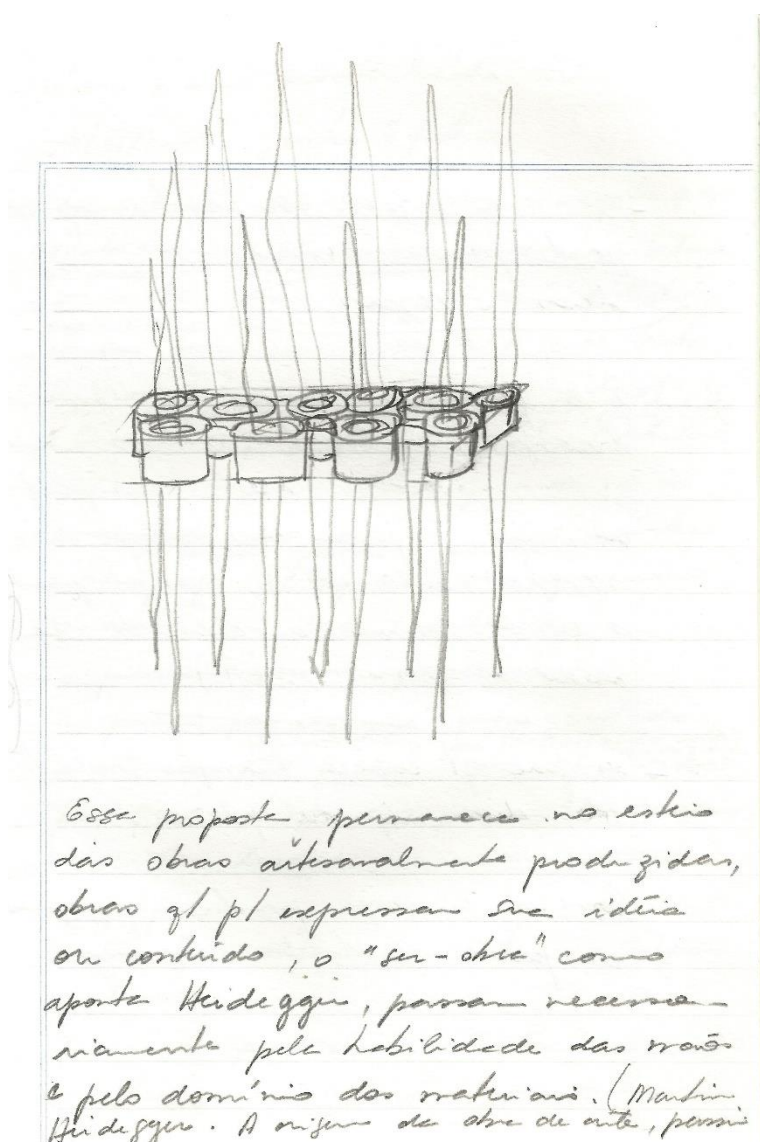 Essa proposta permanece no esteio
das obras artesanalmente produzidas,
obras q/ p/ expressar sua idéia
ou conteúdo, o "ser-obra" como
aponta Heidegger, passam necessa
riamente pela habilidade das mãos
e pelo domínio dos materiais. (Martin
Heidegger. A origem da obra de arte,